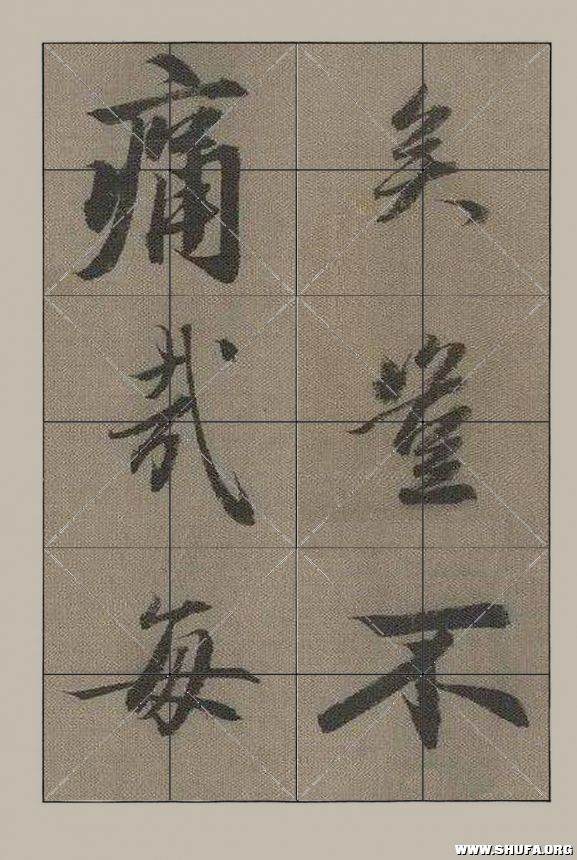 矣豈不
痛哉每
WWW.SHUFA.ORG